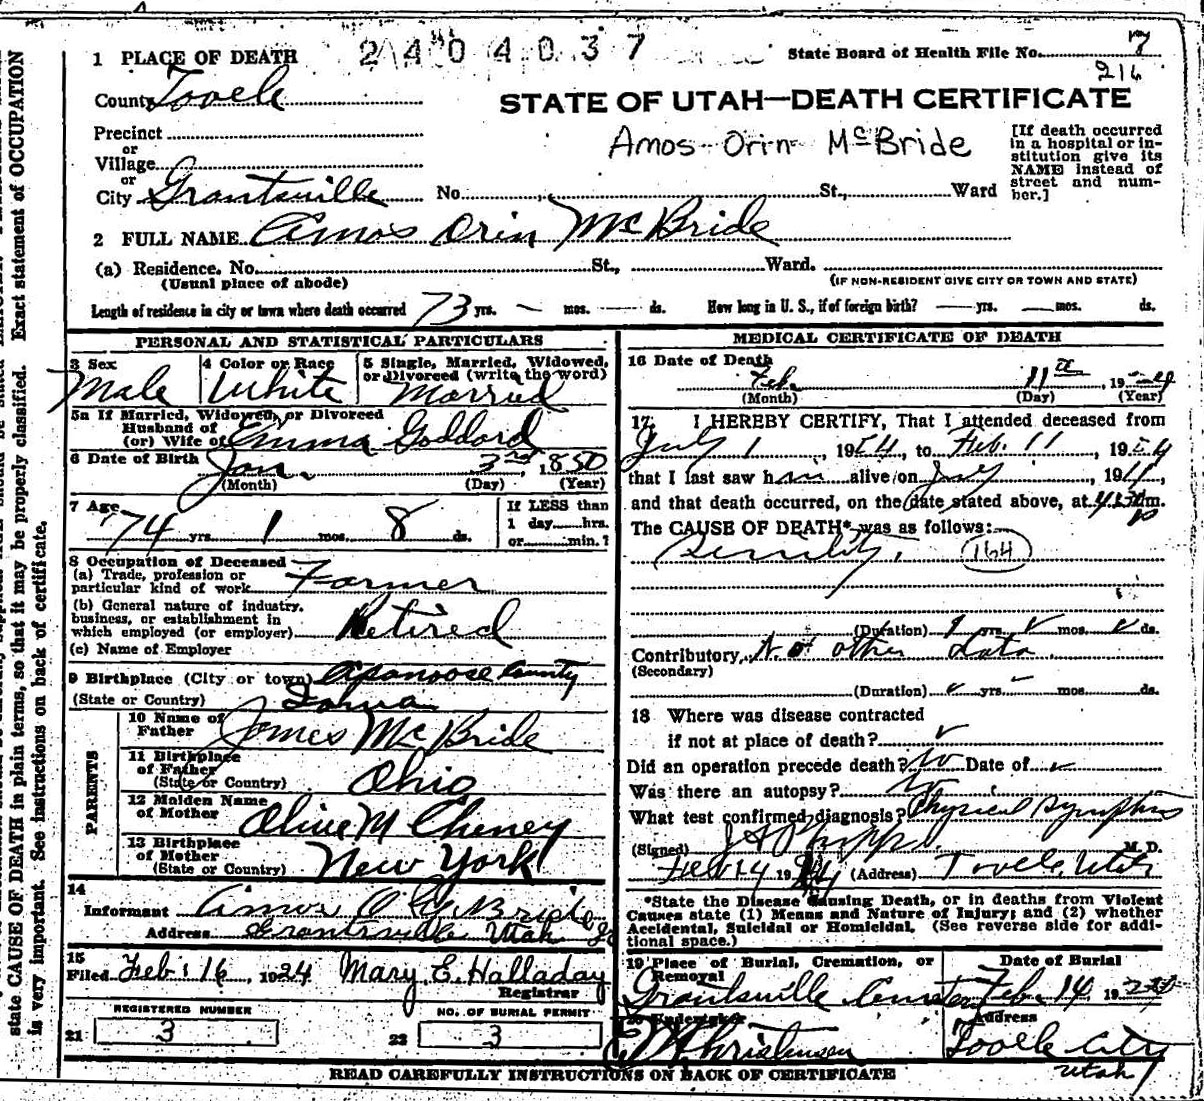 2404037 State Board of Health File No. 7
1 PLACE OF DEATH 216
County Tooele
STATE OF UTAH—DEATH CERTIFICATE
Precinct
or
Village
or
City Grantsville No. St., Ward
Amos Orin McBride
[If death occurred
in a hospital or in-
stitution give its
NAME instead of
street and num-
ber.]
2 FULL NAME Amos Orin McBride
(a) Residence. No. St., Ward.
(Usual place of abode) (IF NON-RESIDENT GIVE CITY OR TOWN AND STATE)
Length of residence in city or town where death occurred 73 yrs. — mos. — ds. How long in U. S., if of foreign birth? — yrs. — mos. ds.
PERSONAL AND STATISTICAL PARTICULARS
3 Sex 4 Color or Race 5 Single, Married, Widowed,
or Divorced (write the word)
Male White Married
5a If Married, Widowed, or Divorced
Husband of
(or) Wife of Emma Goddard
6 Date of Birth Jan. 3rd, 1850
(Month) (Day) (Year)
7 Age 74 yrs. 1 mos. 8 ds.
If LESS than
1 day......hrs.
or......min.?
8 Occupation of Deceased
(a) Trade, profession or
particular kind of work Farmer
(b) General nature of industry,
business, or establishment in
which employed (or employer) Retired
(c) Name of Employer
9 Birthplace (City or town) Apanoose County
(State or Country) Iowa
PARENTS
10 Name of
Father James McBride
11 Birthplace
of Father
(State or Country) Ohio
12 Maiden Name
of Mother Olive M Cheney
13 Birthplace
of Mother
(State or Country) New York
14
Informant Amos O McBride
Address Grantsville Utah
15
Filed Feb. 16, 1924 Mary E. Halladay
Registrar
REGISTERED NUMBER NO. OF BURIAL PERMIT
21 3 22 3
MEDICAL CERTIFICATE OF DEATH
16 Date of Death
Feb. 11th, 1924
(Month) (Day) (Year)
17. I HEREBY CERTIFY, That I attended deceased from
July 1, 19 to Feb. 11 19
that I last saw him alive on July, 19
and that death occurred, on the date stated above, at m.
The CAUSE OF DEATH* was as follows:
Senility. 164
(Duration) yrs. mos. ds.
Contributory No other data
(Secondary)
(Duration) yrs. mos. ds.
18 Where was disease contracted
if not at place of death?
Did an operation precede death? No Date of
Was there an autopsy? No
What test confirmed diagnosis? Physical Symptoms
(Signed) M. D.
Feb 14 19 (Address) Tooele, Utah
*State the Disease Causing Death, or in deaths from Violent
Causes state (1) Means and Nature of Injury; and (2) whether
Accidental, Suicidal or Homicidal. (See reverse side for addi-
tional space.)
19 Place of Burial, Cremation, or
Removal
Date of Burial
Grantsville Cemetery Feb. 14 19
20 Undertaker Address
Christensen Tooele City
Utah
READ CAREFULLY INSTRUCTIONS ON BACK OF CERTIFICATE
state CAUSE OF DEATH in plain terms, so that it may be properly classified. Exact statement of OCCUPATION
is very important. See instructions on back of certificate.